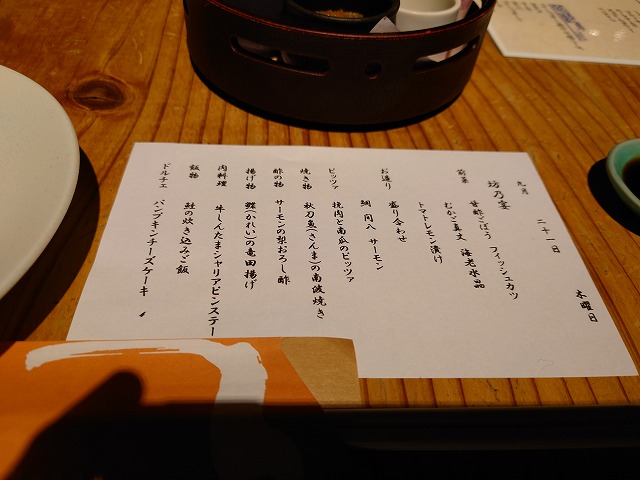 九月 二十一日 木曜日
坊乃宴
前菜 甘酢ごぼう フィッシュカツ
むかご真丈 海老水晶
トマトレモン漬け
お造り 盛り合わせ
鯛 間八 サーモン
ピッツァ 挽肉と南瓜のピッツァ
焼き物 秋刀魚(さんま)の南波焼き
酢の物 サーモンの梨おろし酢
揚げ物 鰈(かれい)の竜田揚げ
肉料理 牛しんたまシャリアピンステー
飯物 鮭の炊き込みご飯
ドルチェ パンプキンチーズケーキ